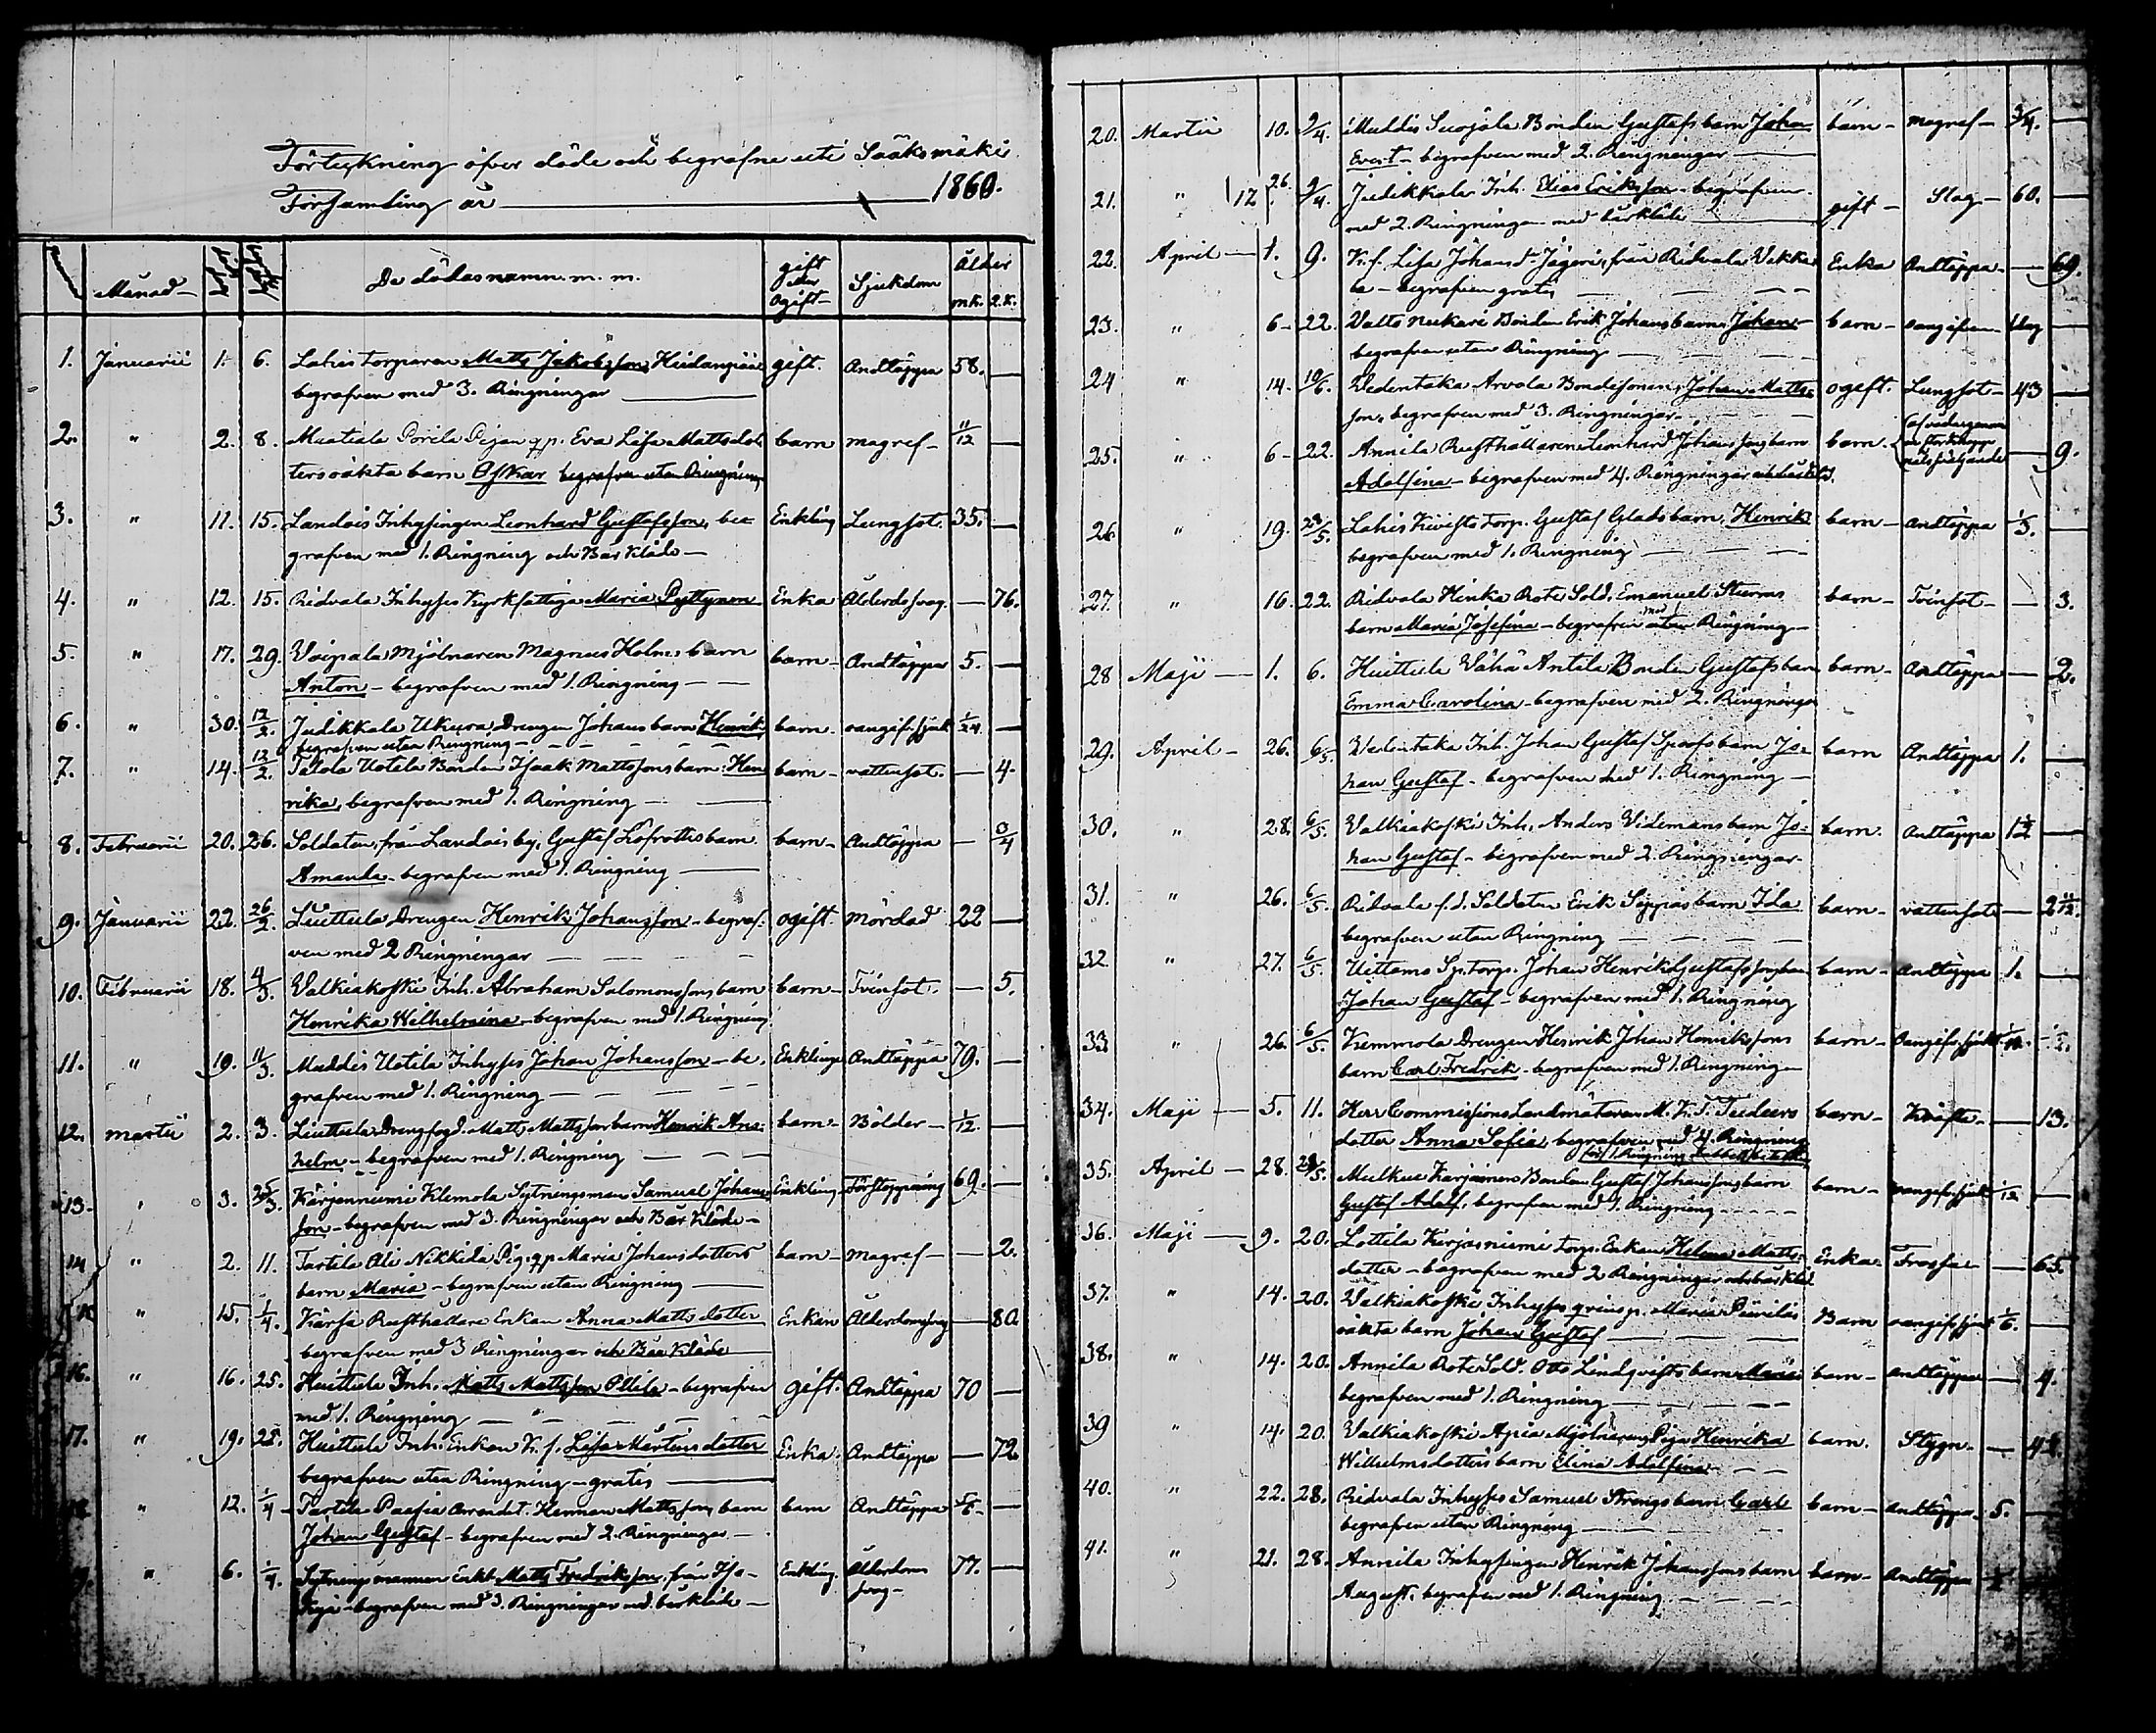 Förteckning öfver döde och begrafne uti Sääksmäki
Församling år 1860.
Månad
De dödas namn m. m.
gift eller ogift
Sjukdom
Ålder
mk. q.k.
1. Januarii 1. 6. Lahis torparen Matts Jakobsson begrafven med 3. Ringningar gift. Andtäppa 58.
2. " 2. 8. Muatiala Pigan Eva Lisa Mattsdotters oäkta barn Oskar begrafven utan Ringning barn magref 11/12
3. " 11. 15. Landois Inhysingen Leonhard Gustafsson, begrafven med 1. Ringning och Bår Kläde Enkling Lungsot. 35.
4. " 12. 15. Ridvala Inhyses Kyrkfattiga Maria Pyttynen Enka Ålderdsvag. 76.
5. " 17. 29. Voipala Mjölnaren Magnus Holms barn Anton - begrafven med 1. Ringning barn Andtäppa 5.
6. " 30. 12/2. Judikkala Ukura Drengen Johans barn Henrik begrafven utan Ringning barn oangifv. sjuk 1/24
7. " 14. 12/2. Talola Uotila Bonden Isaak Mattssons barn Henrika, begrafven med 1. Ringning barn vattusot. 4.
8. Februarii 20. 26. Soldaten, från Landois by, Gustaf Löfrotts barn Amanda begrafven med 1. Ringning barn Andtäppa 3/4
9. Januarii 22. 26/2. Liuttula Drengen Henrik Johansson - begrafven med 2 Ringningar ogift mördad 22
10. Februarii 18. 4/3. Valkiakoski Inh. Abraham Salomonssons barn Henrika Wilhelmina - begrafven med 1. Ringning barn Tvinsot. 5.
11. " 19. 11/3. Muddis Uotila Inhyses Johan Johansson - begrafven med 1. Ringning Enkling Andtäppa 79.
12. martii 2. 3. Liuttula Drengfogd. Matts Mattsson barn Henrik Anshelm - begrafven med 1. Ringning barn Bölder 1/12.
13. " 3. 25/3. Kärjenniemi Klemola Sytningsman Samuel Johansson - begrafven med 3. Ringningar och Bår Kläde Enkling Förstoppning 69.
14. " 2. 11. Tarttila Nikkilä Pig. Maria Johansdotters barn Maria - begrafven utan Ringning barn magref 2.
" 15. 1/4. Kärsa Rusthållare Enkan Anna Matts dotter begrafven med 3 Ringningar och Bår Kläde Enkan Ålderdomsvag 80.
16. " 16. 25. Huittula Inh. Matts Mattsson Ollila - begrafven med 1. Ringning gift. Andtäppa 70
17. " 19. 25. Huittula Inh. Enkan K. f. Lisa Mårtensdotter begrafven utan Ringning - gratis Enka Andtäppa 72.
" 12. 1/4 Tarttila Paasia Arrendat. Herman Mattssons barn Johan Gustaf - begrafven med 2. Ringningar barn Andtäppa 5/6
" 6. 1/4. Sytningsmannen Enkl. Matts Fredriksson, från begrafven med 3. Ringningar med bårkläde Enkling. Ålderdoms svag 77.
20. Martii 10. 9/4. Muddis Suojala Bonden Gustafs barn Johan Evert - begrafven med 2. Ringningar barn magref 3/4.
21. " 12 26. 9/4. Judikkala Inh. Elias Eriksson - begrafven med 2. Ringningar med bårkläde gift Slag 60.
22. April 1. 9. K. f. Lisa Johansd. Jägeri, från Ridvala begrafven gratis Enka Andtäppa 69.
23. " 6 22. Valto Neukari Bonden Erik Johans barn Johan begrafven utan Ringning barn oangifven
24 " 14. 10/6. Vedentaka Arvola Bondesonen Johan Mattsson, begrafven med 3. Ringningar. ogift. Lungsot 43
25. " 6 22. Annila Rusthållaren Leonhard Johanssons barn Adolfina - begrafven med 4. Ringningar barn 9.
26. " 19. 23/5. Lahis Torp. Gustaf Glads barn Henrik begrafven med 1. Ringning barn Andtäppa 1/3.
27. " 16. 22. Ridvala Hinka Rote Sold. Emanuel Sturms barn Maria Josefina - begrafven utan med Ringning barn Tvinsot 3.
28 Maji 1. 6. Huittula Vähä Antila Bonden Gustafs barn Emma Carolina - begrafven med 2. Ringningar barn Andtäppa 2.
29. April 26. 6/5. Vedentaka Inh. Johan Gustaf Spoofs barn Johan Gustaf - begrafven med 1. Ringning barn Andtäppa 1.
30. " 28. 6/5. Valkiakoski Inh. Anders Widemans barn Johan Gustaf - begrafven med 2. Ringningar barn. Andtäppa 1 1/2
31. " 26. 6/5. Ridvala f. d. Soldaten Erik Seppäs barn Ida begrafven utan Ringning barn vattusot 2 11/12.
32. " 27. 6/5. Uittamo Sp. torp. Johan Henrik Gustafssons barn Johan Gustaf - begrafven med 1. Ringning barn Andtäppa 1.
33. " 26. 6/5. Kemmola Drengen Henrik Johan Henrikssons barn Carl Fredrik - begrafven med 1. Ringning barn Oangifv. sjukd.
34. Maji 5. 11. Herr Commissions Landmätaren M. K. T. dotter Anna Sofia, begrafven med 4. Ringningar barn Kräfta 13.
35. April 28. Mulkus Karjunens Bonden Gustaf Johanssons barn Gustaf Adolf, begrafven med 1. Ringning barn oangifv. sjukd. 1/12
36. Maji 9. 20. Lottila Kärjesniemi torp. Enkan Helena Mattsdotter - begrafven med 2 Ringningar och bår Kläd Enka 65.
37. " 14. 20. Valkiakoski Inhyses qvinsp. Maria oäkta barn Johan Gustaf Barn oangifv. sjukd 1/6.
38. " 14. 20. Annila Rote Sold. Otto Lindqvists barn Maria begrafven med 1. Ringning barn Andtäppa 4.
39 " 14. 20. Valkiakoski Apia Mjölnarens Piga Henrika Wilhelmsdotters barn Elina Adolfina barn. Stygn
40. " 22. 28. Ridvala Inhyses Samuel Strengs barn Carl begrafven utan Ringning barn Andtäppa. 5.
41. " 21. 28. Annila Inhysingen Henrik Johanssons barn August, begrafven med 1. Ringning barn Andtäppa